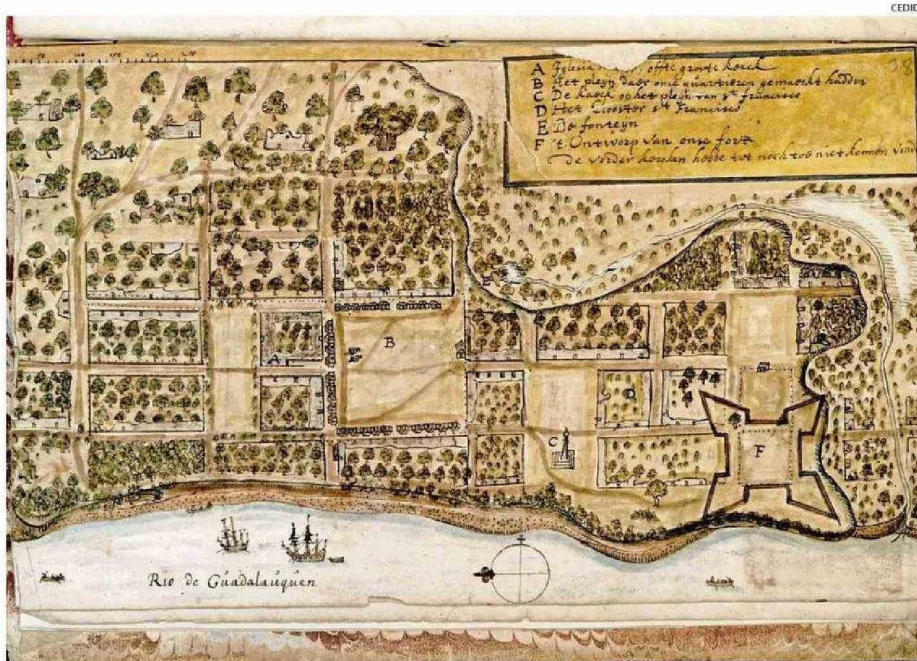 CEDID
38
A Iglesia offte groote kerck
B Het pleyn daer onse quartieren gemaeckt hadden
C De kaeck op het pleyn van St francisco
D Het Clooster St Francisco
E De fonteyn
F 't Ontworp van onse fort
De vorder hebbe tot noch toe niet konnen
A
B
C
D
F
Rio de Guadalauquen